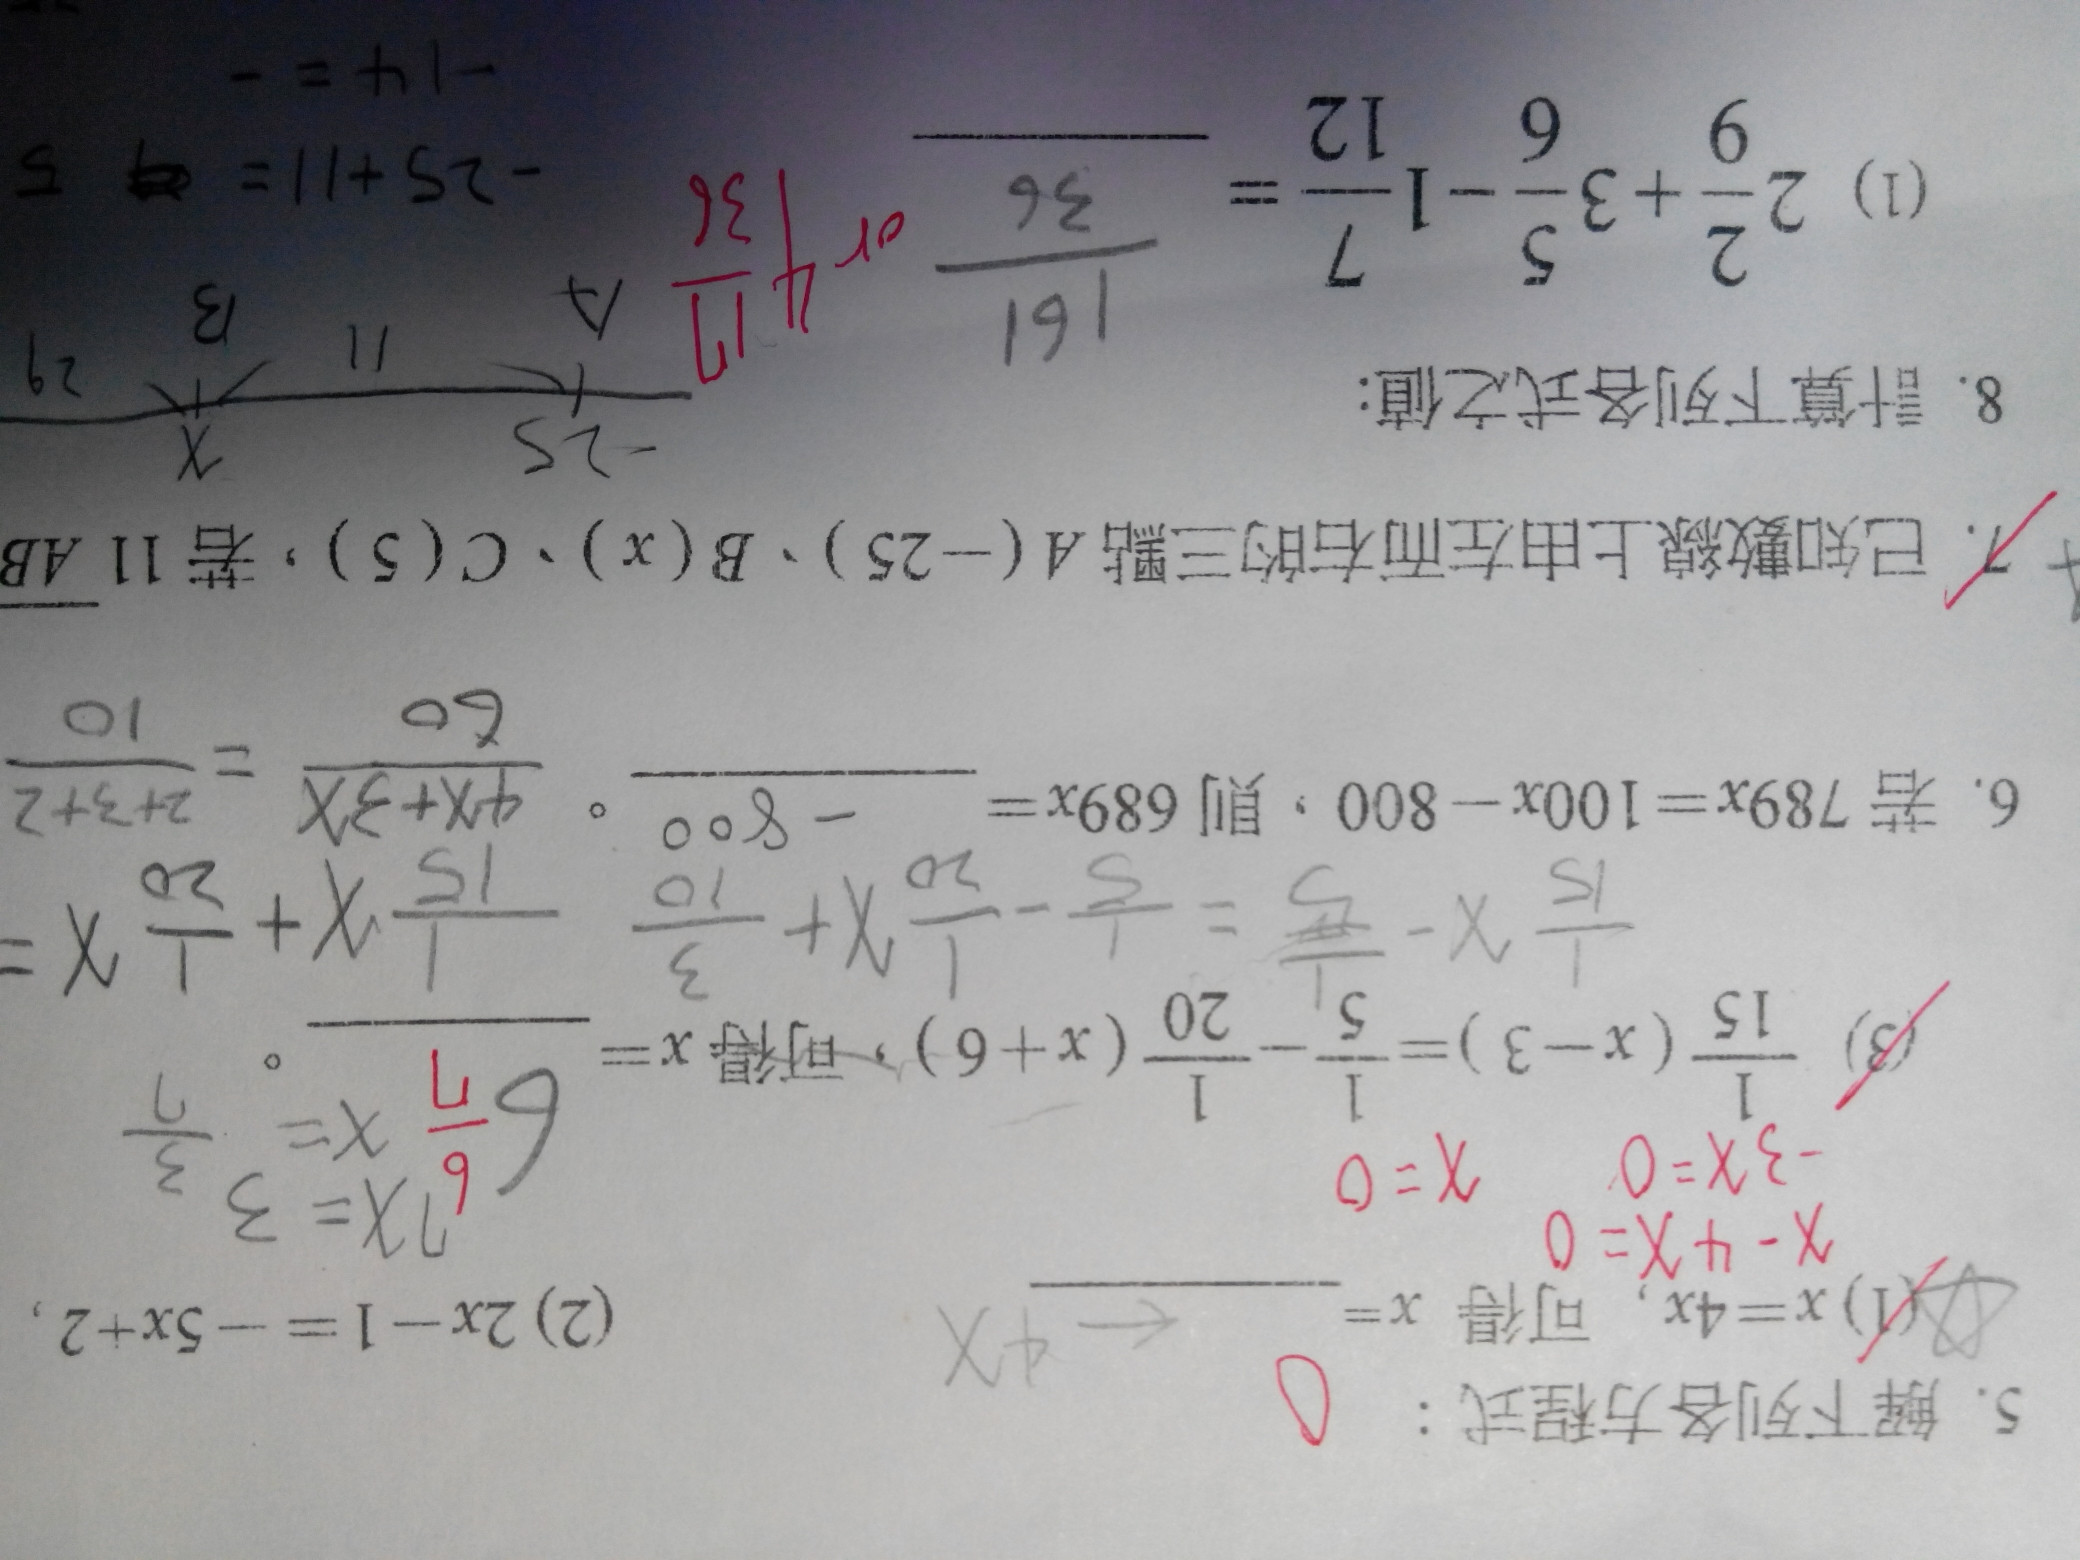 5. 解下列各方程式：
0
(1) x=4x, 可得 x= ← 4X
(2) 2x−1=−5x+2,
x-4x=0
-3x=0 x=0
7x=3
x= 3/7
(3) 1/15 (x−3)= 1/5 − 1/20 (x+6)，可得 x= 6 。
6/7
1/15 x - 1/5 = 1/5 - 1/20 x + 3/10
1/15 x + 1/20 x =
6. 若 789x=100x−800，則 689x= -800 。
4x+3x/60 = 2+3+2/10
7. 已知數線上由左而右的三點 A (−25)、B (x)、C (5)，若 11 AB
8. 計算下列各式之值:
-25 x
A 11 B 29
(1) 2 2/9 + 3 5/6 − 1 7/12 = 161/36 or 4 17/36
-25+11= 5
-14=-